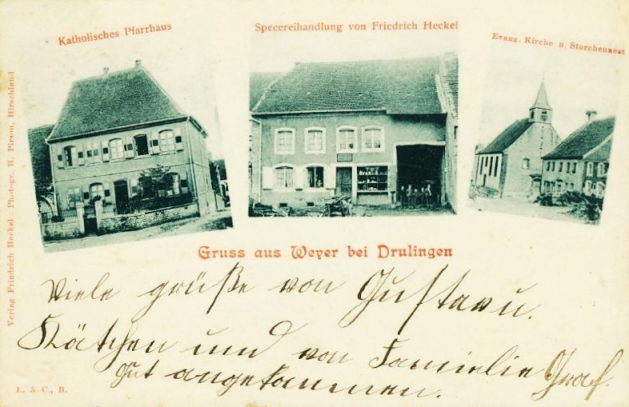 Katholisches Pfarrhaus
Specereihandlung von Friedrich Heckel
Evang. Kirche u. Storchennest
Verlag Friedrich Heckel Photogr. H. Pieron, Hirschland
Gruss aus Weyer bei Drulingen
Viele grüße von Gustav u.
Kätchen und von Familie Graf.
Gut angekommen.
L. S. C., B.